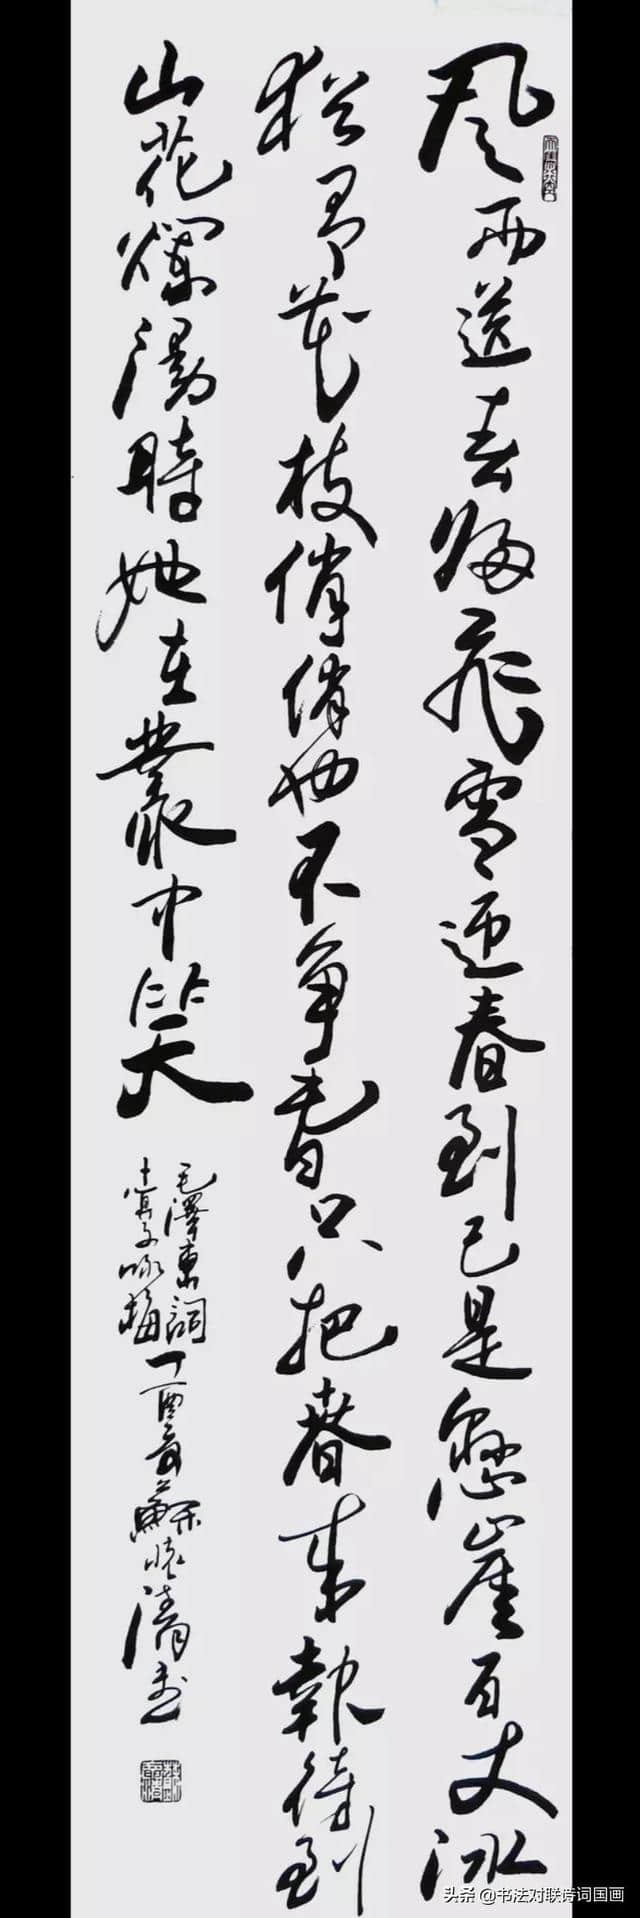 风雨送春归飛雪迎春到已是懸崖百丈冰
猶有花枝俏俏也不争春只把春来報待到
山花爛漫時她在叢中笑
毛澤東詞
卜算子咏梅
丁酉蘇懷清书
头条 @书法对联诗词国画